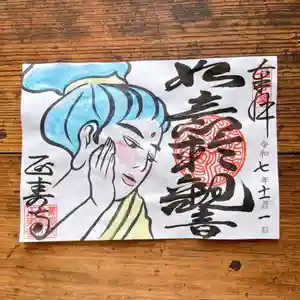 奉拝
如意輪観音
令和七年十一月一日
正寿寺